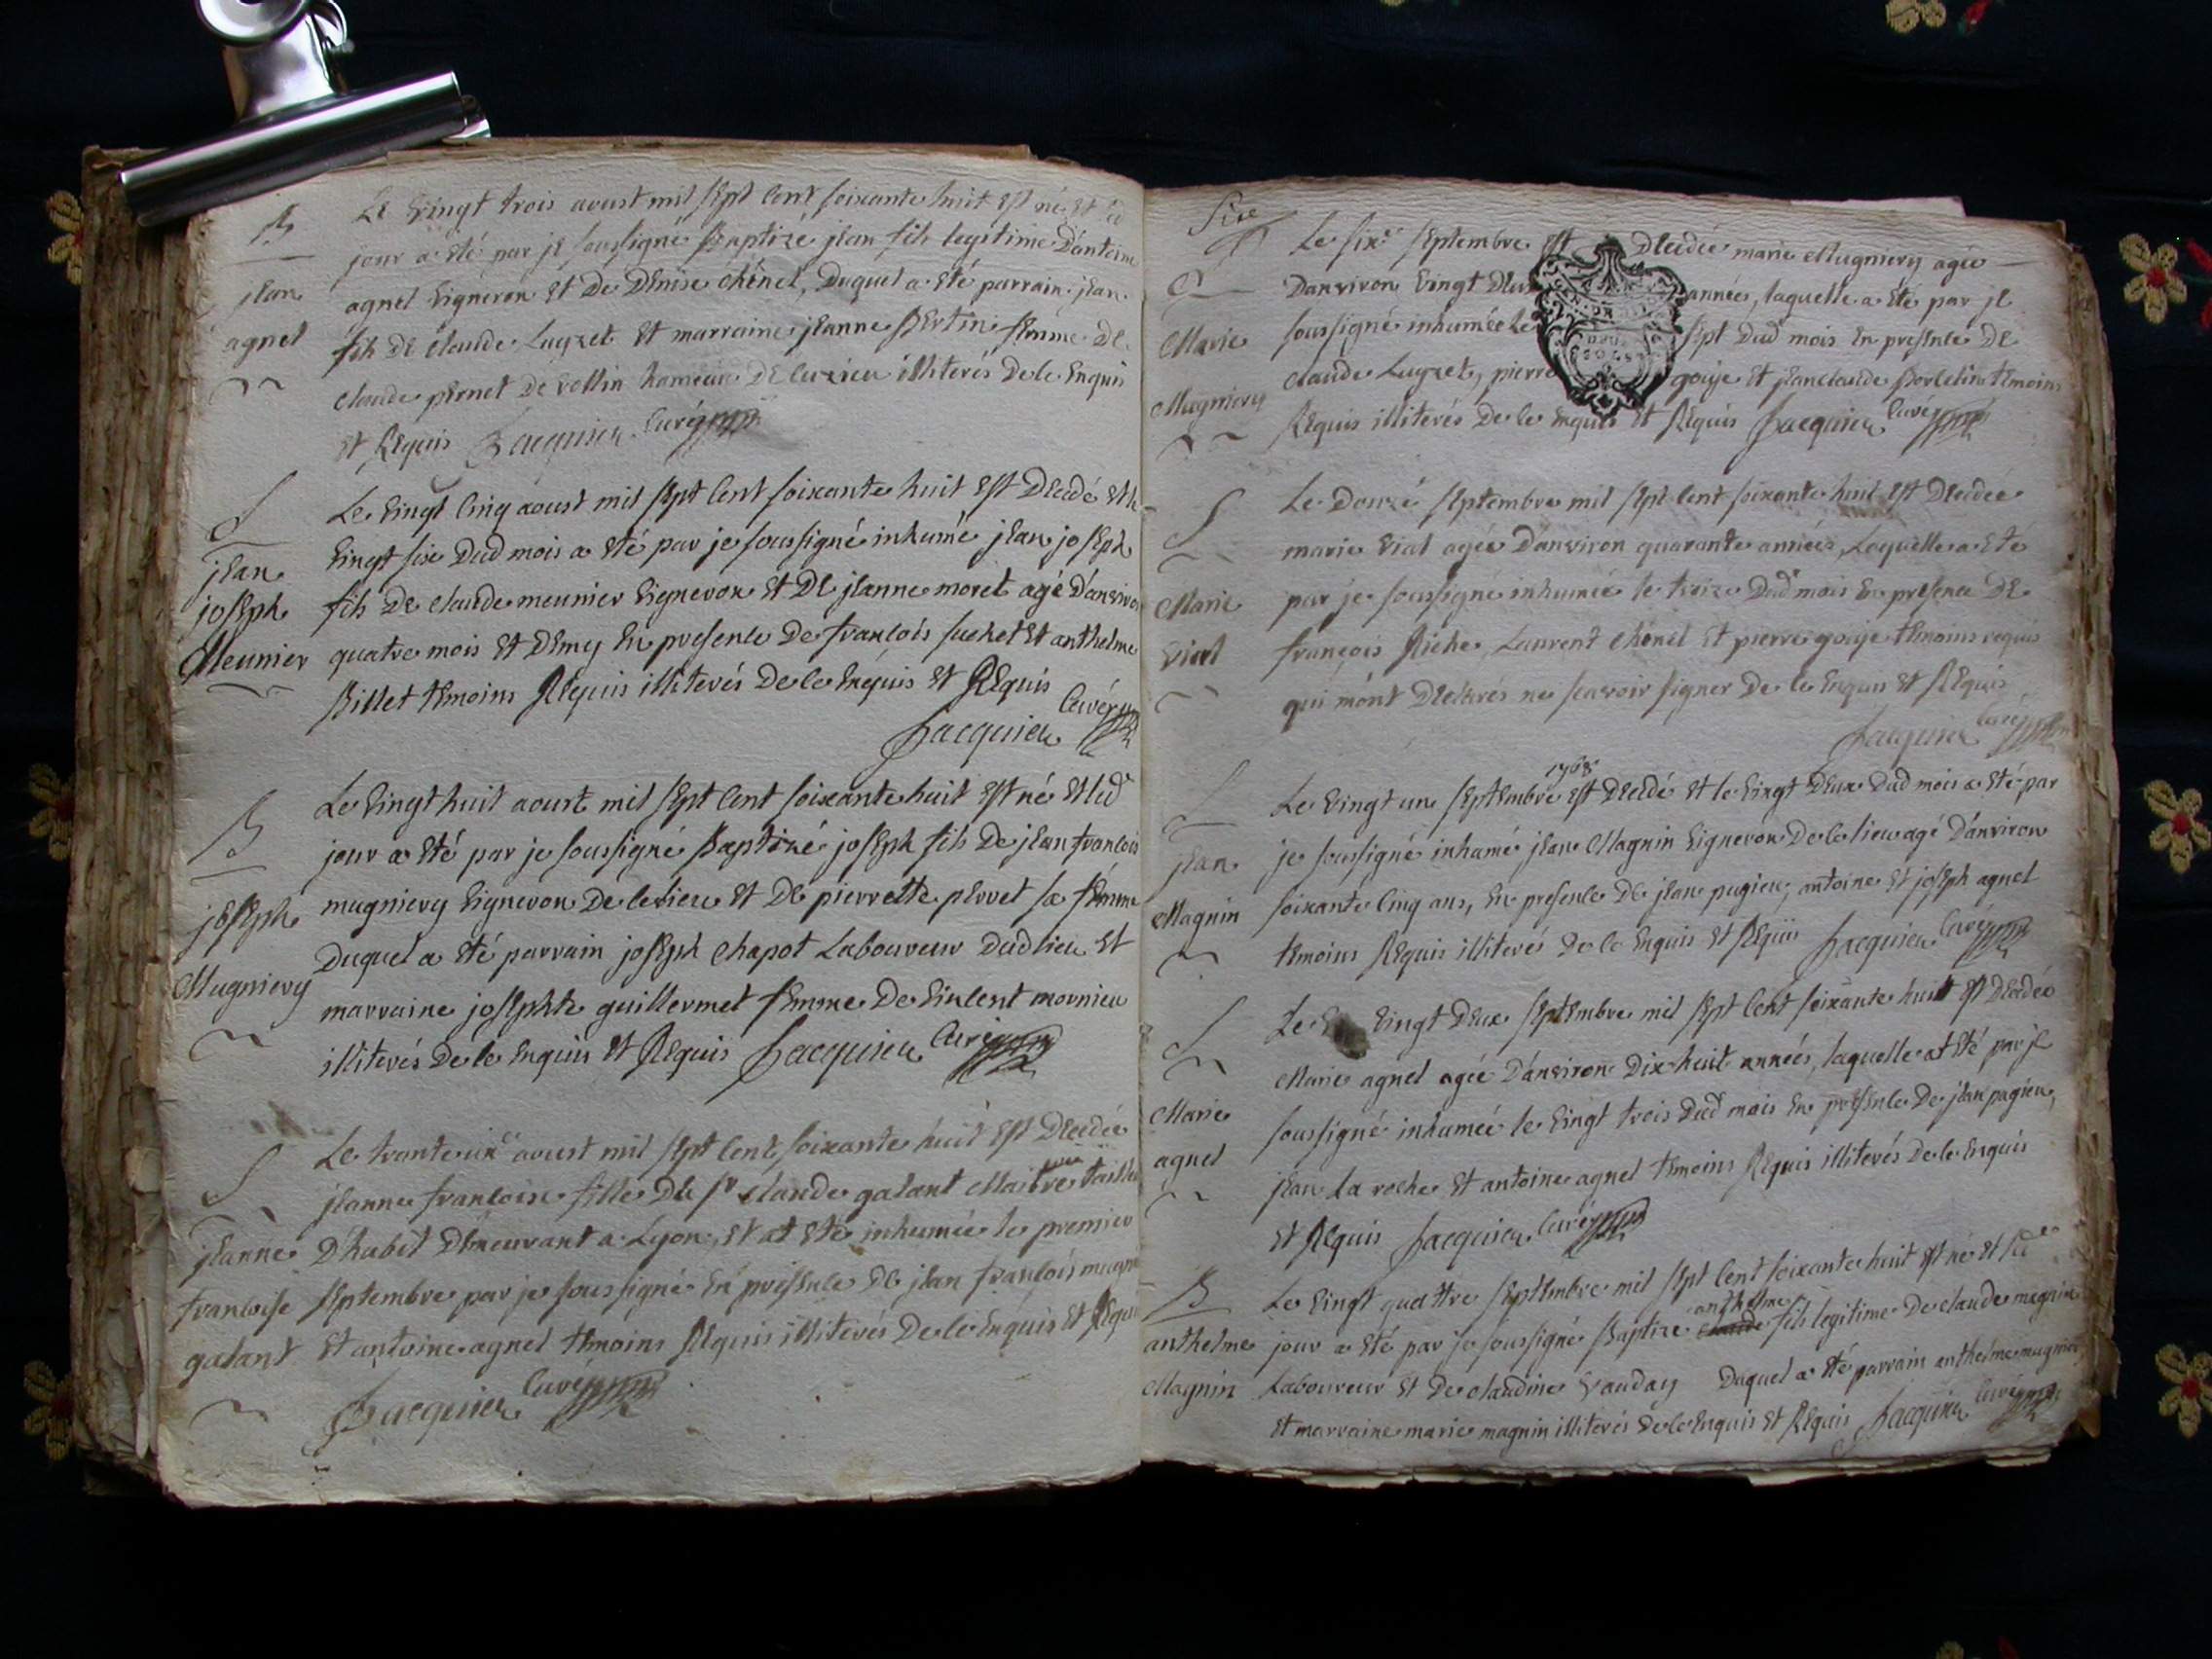 B
jean
agnel
Le vingt trois aoust mil sept cent soixante huit est né et led
jour a eté par je soussigné Baptizé jean fils legitime D'antoine
agnel vigneron et De Denise chênel, Duquel a eté parrain jean
fils De claude Luyzet et marraine jeanne Bertin femme De
claude pernet De vollin hameau De luzieu illiterés De le enquis
et Requis Jacquier curé
S
jean
joseph
Meunier
Le vingt cinq aoust mil sept cent soixante huit est Decedé et le
vingt six Dud mois a eté par je soussigné inhumé jean joseph
fils De claude meunier vigneron et De jeanne moret agé D'anviron
quatre mois et Demy en presence De françois suchet et anthelme
Billet temoins Requis illiterés De ce enquis et Requis
Jacquier curé
B
joseph
Mugniery
Le vingt huit aoust mil sept cent soixante huit est né et led
jour a eté par je soussigné Baptizé joseph fils De jean francois
mugniery vigneron De ce lieu et De pierrette pervet sa femme
Duquel a eté parrain joseph chapot Laboureur Dud lieu et
marraine josephte guillermet femme De vincent mornieu
illiterés De ce enquis et Requis Jacquier curé
S
jeanne
francoise
galant
Le trante aoust mil sept cent soixante huit est Decedée
jeanne francoise fille De Sr claude galant Maitre taille
D'habit Demeurant a Lyon, et at eté inhumée le premier
septembre par je soussigné en presence De jean françois mugn
et antoine agnel temoins Requis illiterés De ce enquis et Requi
Jacquier curé
Sixe
S
Marie
Mugniery
Le sixe septembre est Decedée marie Mugniery agée
D'anviron vingt Deux année, laquelle a eté par je
soussigné inhumée le sept Dud mois en presence De
claude Luyzet, pierre gouje et jean claude Borlelin temoins
Requis illiterés De ce enquis et Requis Jacquier curé
S
Marie
vial
Le Douze septembre mil sept cent soixante huit est Decedée
marie vial agée D'anviron quarante années, Laquelle a eté
par je soussigné inhumée le treize Dud mois en presence De
françois Riche, Laurent chênel et pierre gouje temoins requis
qui m'ont Declarés ne scavoir signer De ce enquis et Requis
Jacquier curé
S
jean
Magnin
1768
Le vingt un septembre est Decedé et le vingt Deux Dud mois a eté par
je soussigné inhumé jean Magnin vigneron De ce lieu agé D'anviron
soixante cinq ans, en presence De jean pugieu, antoine et joseph agnel
temoins Requis illiterés De ce enquis et Requis Jacquier curé
S
Marie
agnel
Le vingt Deux septembre mil sept cent soixante huit est Decedée
Marie agnel agée D'anviron Dix-huit années, laquelle at eté par je
soussigné inhumée le vingt trois Dud mois en presence De jean pugieu,
jean La roche et antoine agnel temoins Requis illiterés De ce enquis
et Requis Jacquier curé
B
anthelme
Magnin
Le vingt quattre septembre mil sept cent soixante huit est né et led
anthelme
jour a eté par je soussigné Baptizé claude fils legitime De claude magnin
Laboureur et De claudine vauday Duquel a eté parrain anthelme mugnier
et marraine marie magnin illiterés De ce enquis et Requis Jacquier curé